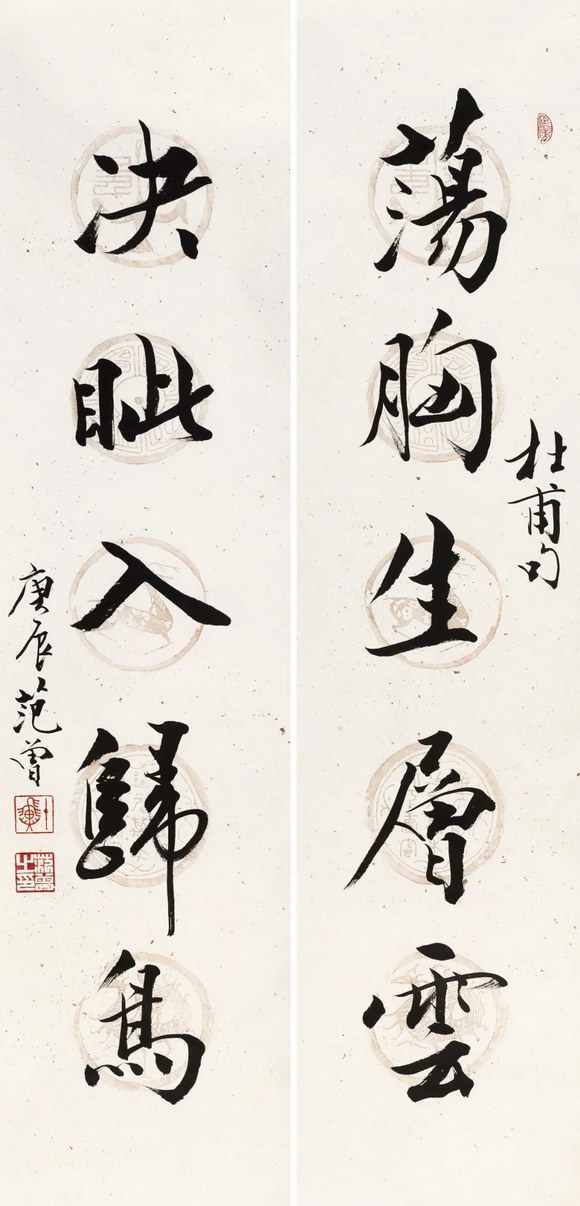 蕩胸生層雲
杜甫句
決眦入歸鳥
庚辰范曾
范曾之印